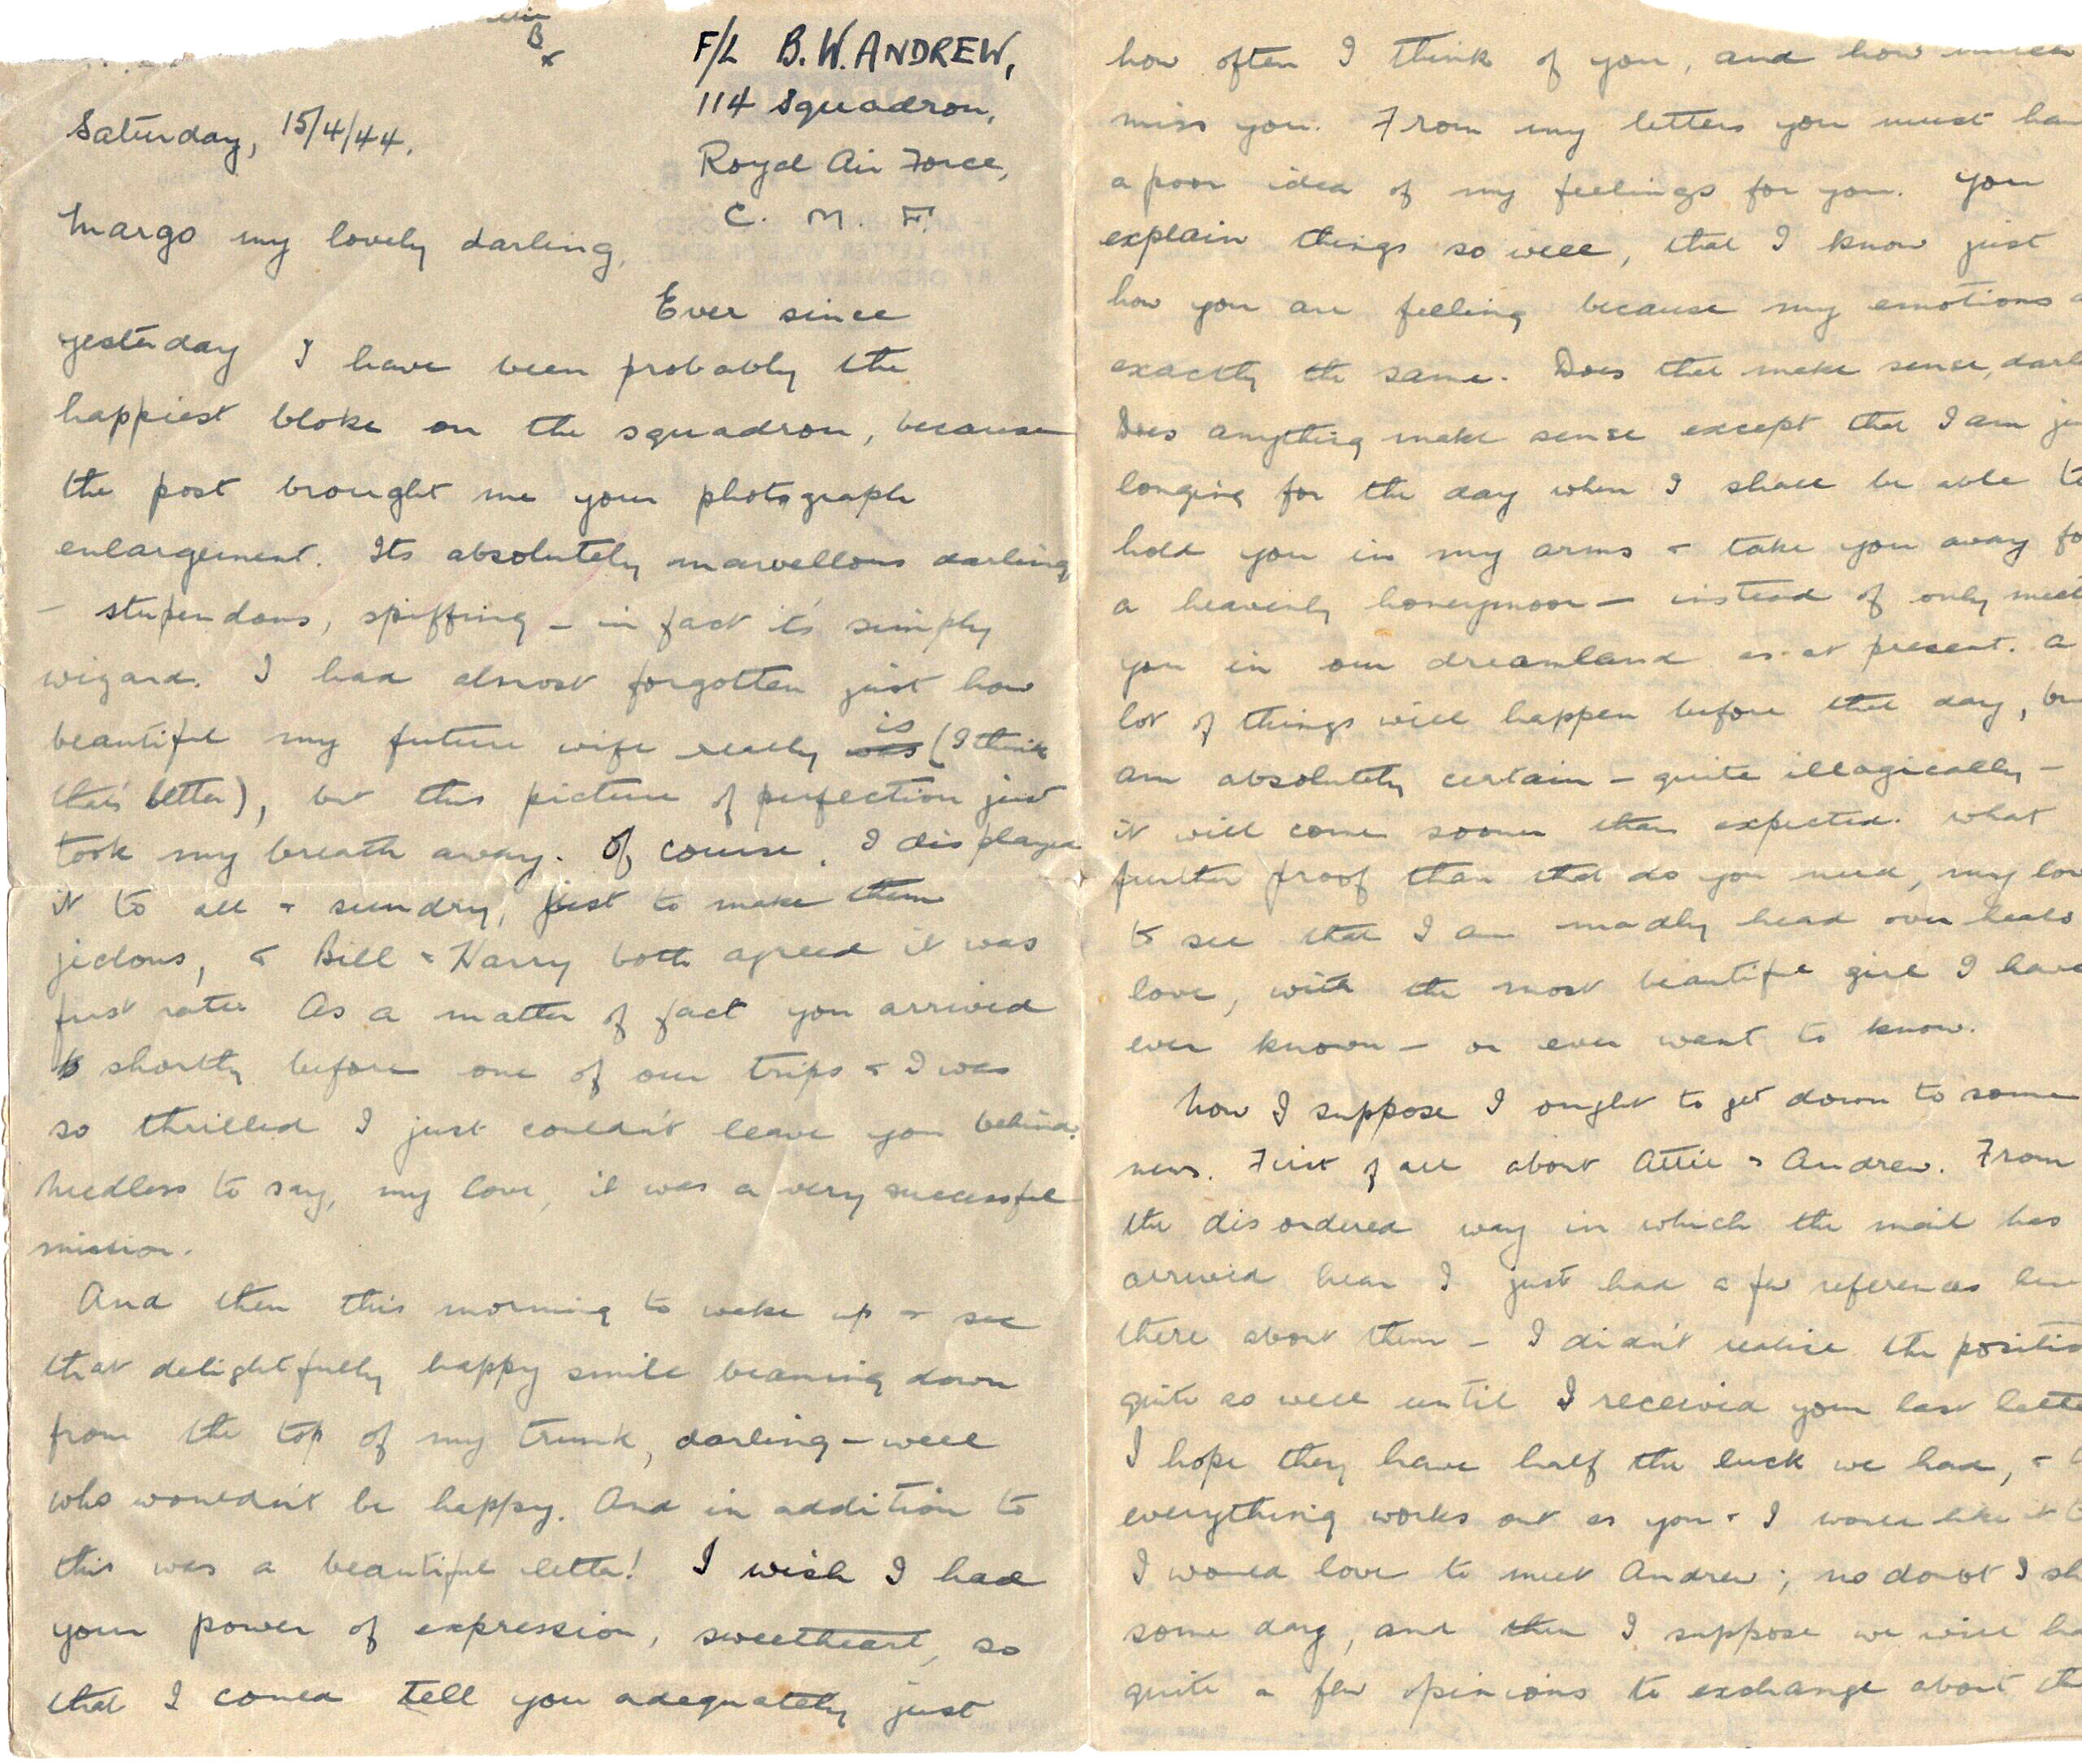 B
x
F/L B.W. ANDREW,
114 Squadron,
Royal Air Force,
C. M. F.
Saturday, 15/4/44.
Margo my lovely darling,
Ever since
yesterday I have been probably the
happiest bloke on the squadron, because
the post brought me your photograph
enlargement. Its absolutely marvellous darling
– stupendous, spiffing – in fact it's simply
wizard. I had almost forgotten just how
beautiful my future wife really was is (I think
that's better), but this picture of perfection just
took my breath away. Of course, I displayed
it to all & sundry, just to make them
jealous, & Bill & Harry both agreed it was
first rate. As a matter of fact you arrived
shortly before one of our trips & I was
so thrilled I just couldn't leave you behind.
Needless to say, my love, it was a very successful
mission.
And then this morning to wake up & see
that delightfully happy smile beaming down
from the top of my trunk, darling – well
who wouldn't be happy. And in addition to
this was a beautiful letter! I wish I had
your power of expression, sweetheart, so
that I could tell you adequately just
how often I think of you, and how much
miss you. From my letters you must ha
a poor idea of my feelings for you. You
explain things so well, that I know just
how you are feeling because my emotions a
exactly the same. Does that make sense, darl
Does anything make sense except that I am ju
longing for the day when I shall be able to
hold you in my arms & take you away fo
a heavenly honeymoon – instead of only meet
you in our dreamland as at present. A
lot of things will happen before that day, bu
am absolutely certain – quite illogically –
it will come sooner than expected. What
further proof than that do you need, my lov
to see that I am madly head over heals
love, with the most beautiful girl I have
ever known – or ever want to know.
Now I suppose I ought to get down to some
news. First of all about Attie & Andrew. From
the disordered way in which the mail has
arrived hear I just had a few references her
there about them – I didn't realise the positio
quite so well until I received your last lette
I hope they have half the luck we had, &
everything works out as you & I would like it to
I would love to meet Andrew; no doubt I sh
some day, and then I suppose we will ha
quite a few opinions to exchange about th